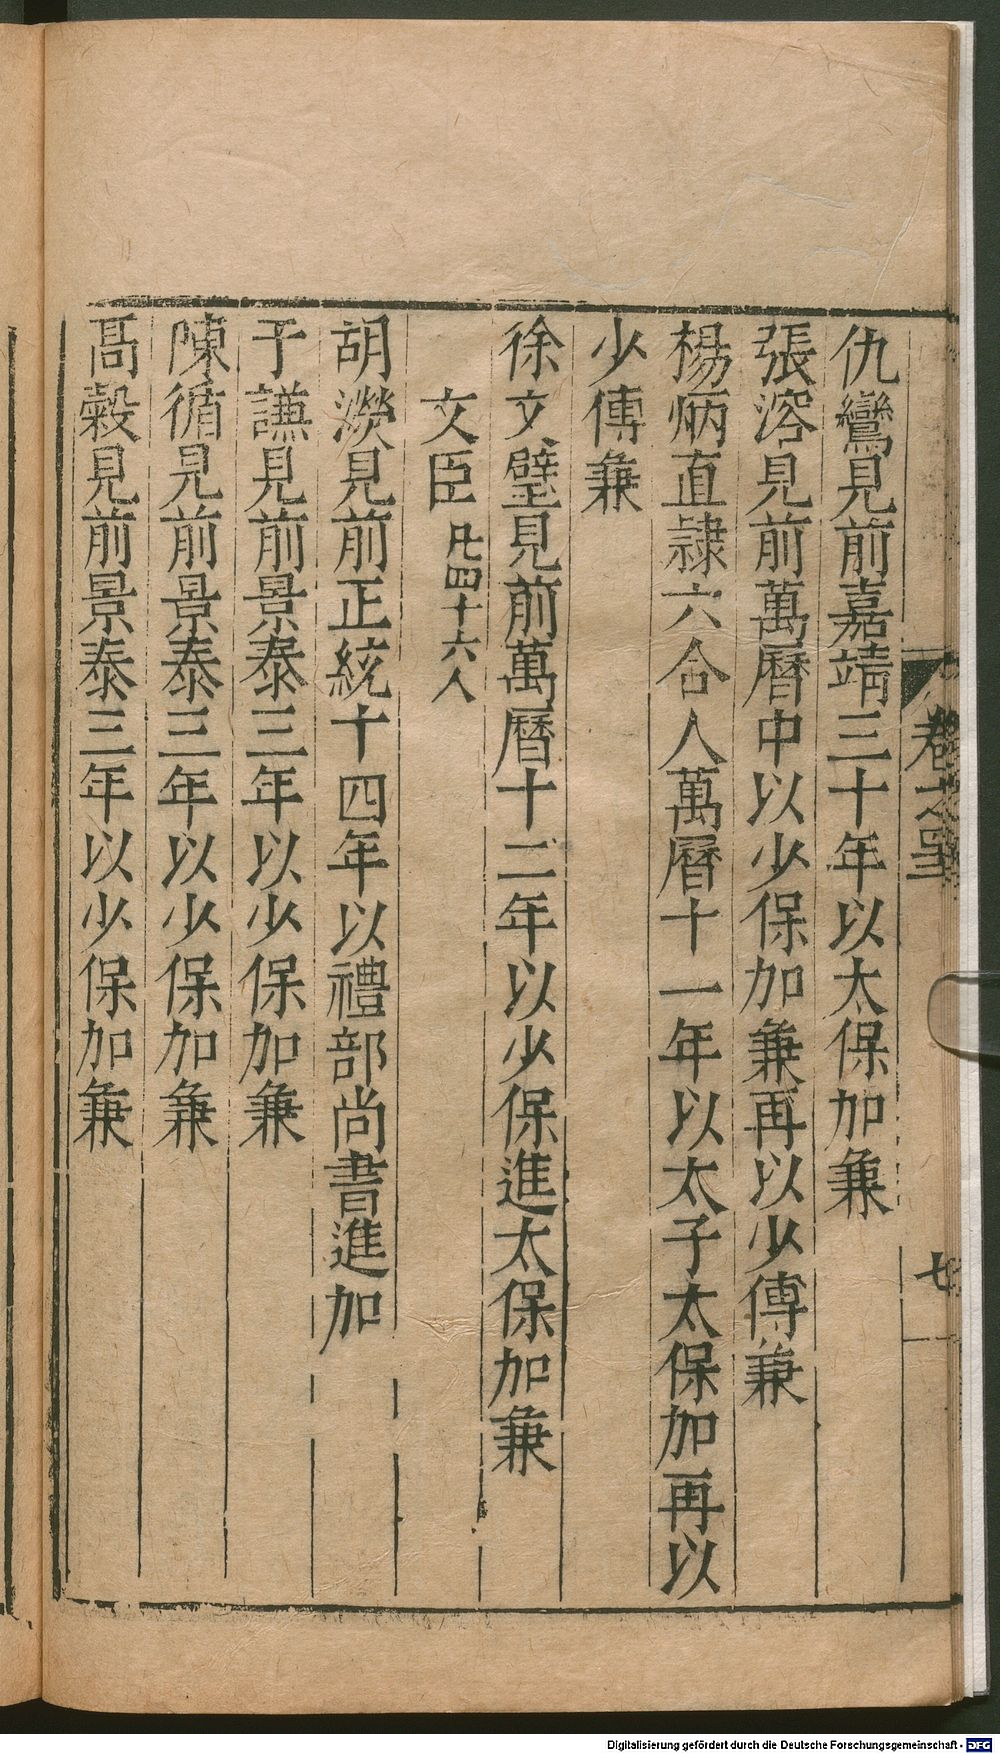 仇鸞見前嘉靖三十年以太保加兼
張溶見前萬曆中以少保加兼再以少傅兼
楊炳直隷六合人萬曆十一年以太子太保加再以
少傅兼
徐文璧見前萬曆十二年以少保進太保加兼
文臣 凡四十六人
胡濙見前正統十四年以禮部尚書進加
于謙見前景泰三年以少保加兼
陳循見前景泰三年以少保加兼
高穀見前景泰三年以少保加兼
七
Digitalisierung gefördert durch die Deutsche Forschungsgemeinschaft - DFG